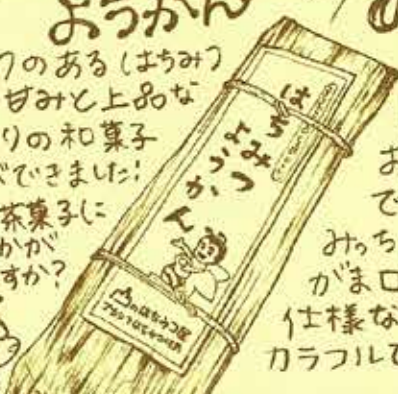 ようかん
クのある（はちみつ
甘みと上品な
りの和菓子
ができました！
茶菓子に
かが
すか？
はちみつ
ようかん
山のはちみつ屋
お
で
みっち
がま口
仕様な
カラフルで